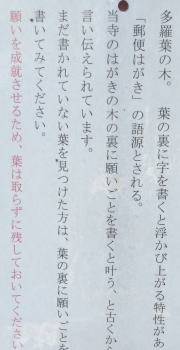 多羅葉の木。　葉の裏に字を書くと浮かび上がる特性があ
「郵便はがき」の語源とされる。
当寺のはがきの木の裏に願いごとを書くと叶う、と古くか
言い伝えられています。
まだ書かれていない葉を見つけた方は、葉の裏に願いごとを
書いてみてください。
願いを成就させるため、葉は取らずに残しておいてください